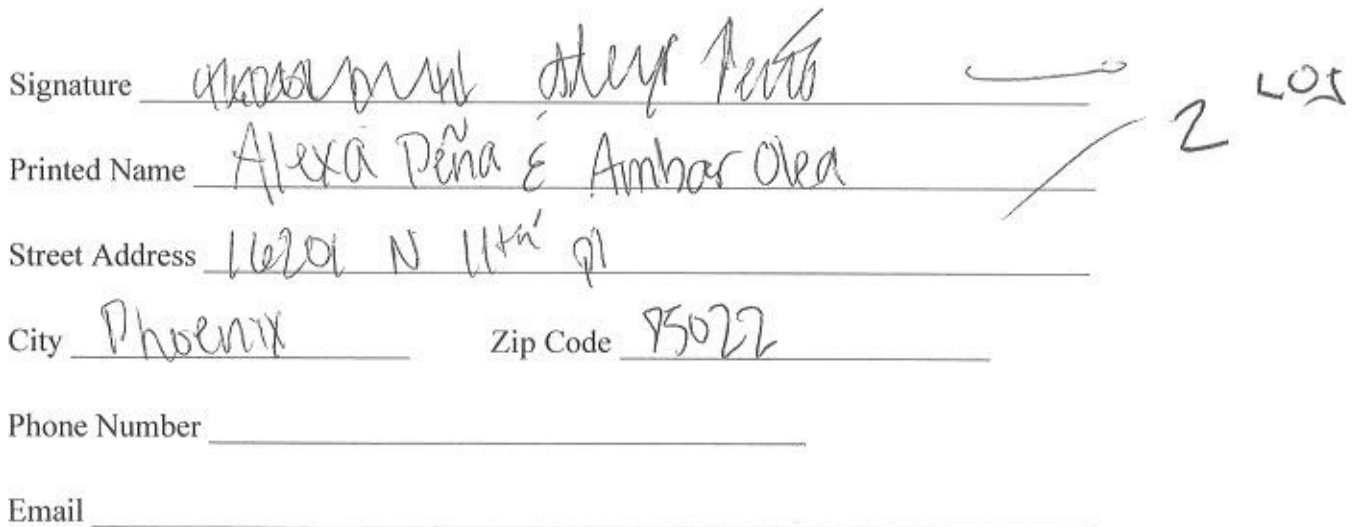 Signature
Printed Name Alexa Peña & Ambar Olea
Street Address 16201 N 11th pl
City Phoenix Zip Code 85022
Phone Number
Email
2 LOS